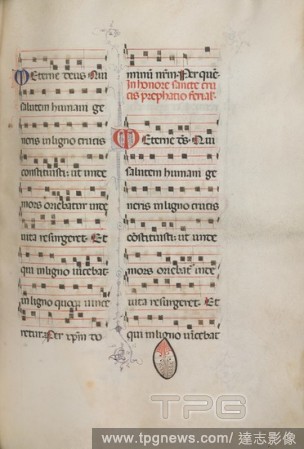 Eterne deus Qui
salutem humani ge
neris in ligno crucis
constituisti: ut unde
mors oriebatur inde
vita resurgeret. Et
qui in ligno vincebat
in ligno quoque vince
retur. Per xpm do
minum nrm. Per quem
In honore sancte cru
cis prephatio ferial.
Eterne ds. Qui
salutem humani ge
neris in ligno crucis
constituisti: ut unde
mors oriebatur inde
vita resurgeret. Et
qui in ligno vincebat
TPG
www.tpgnews.com/達志影像